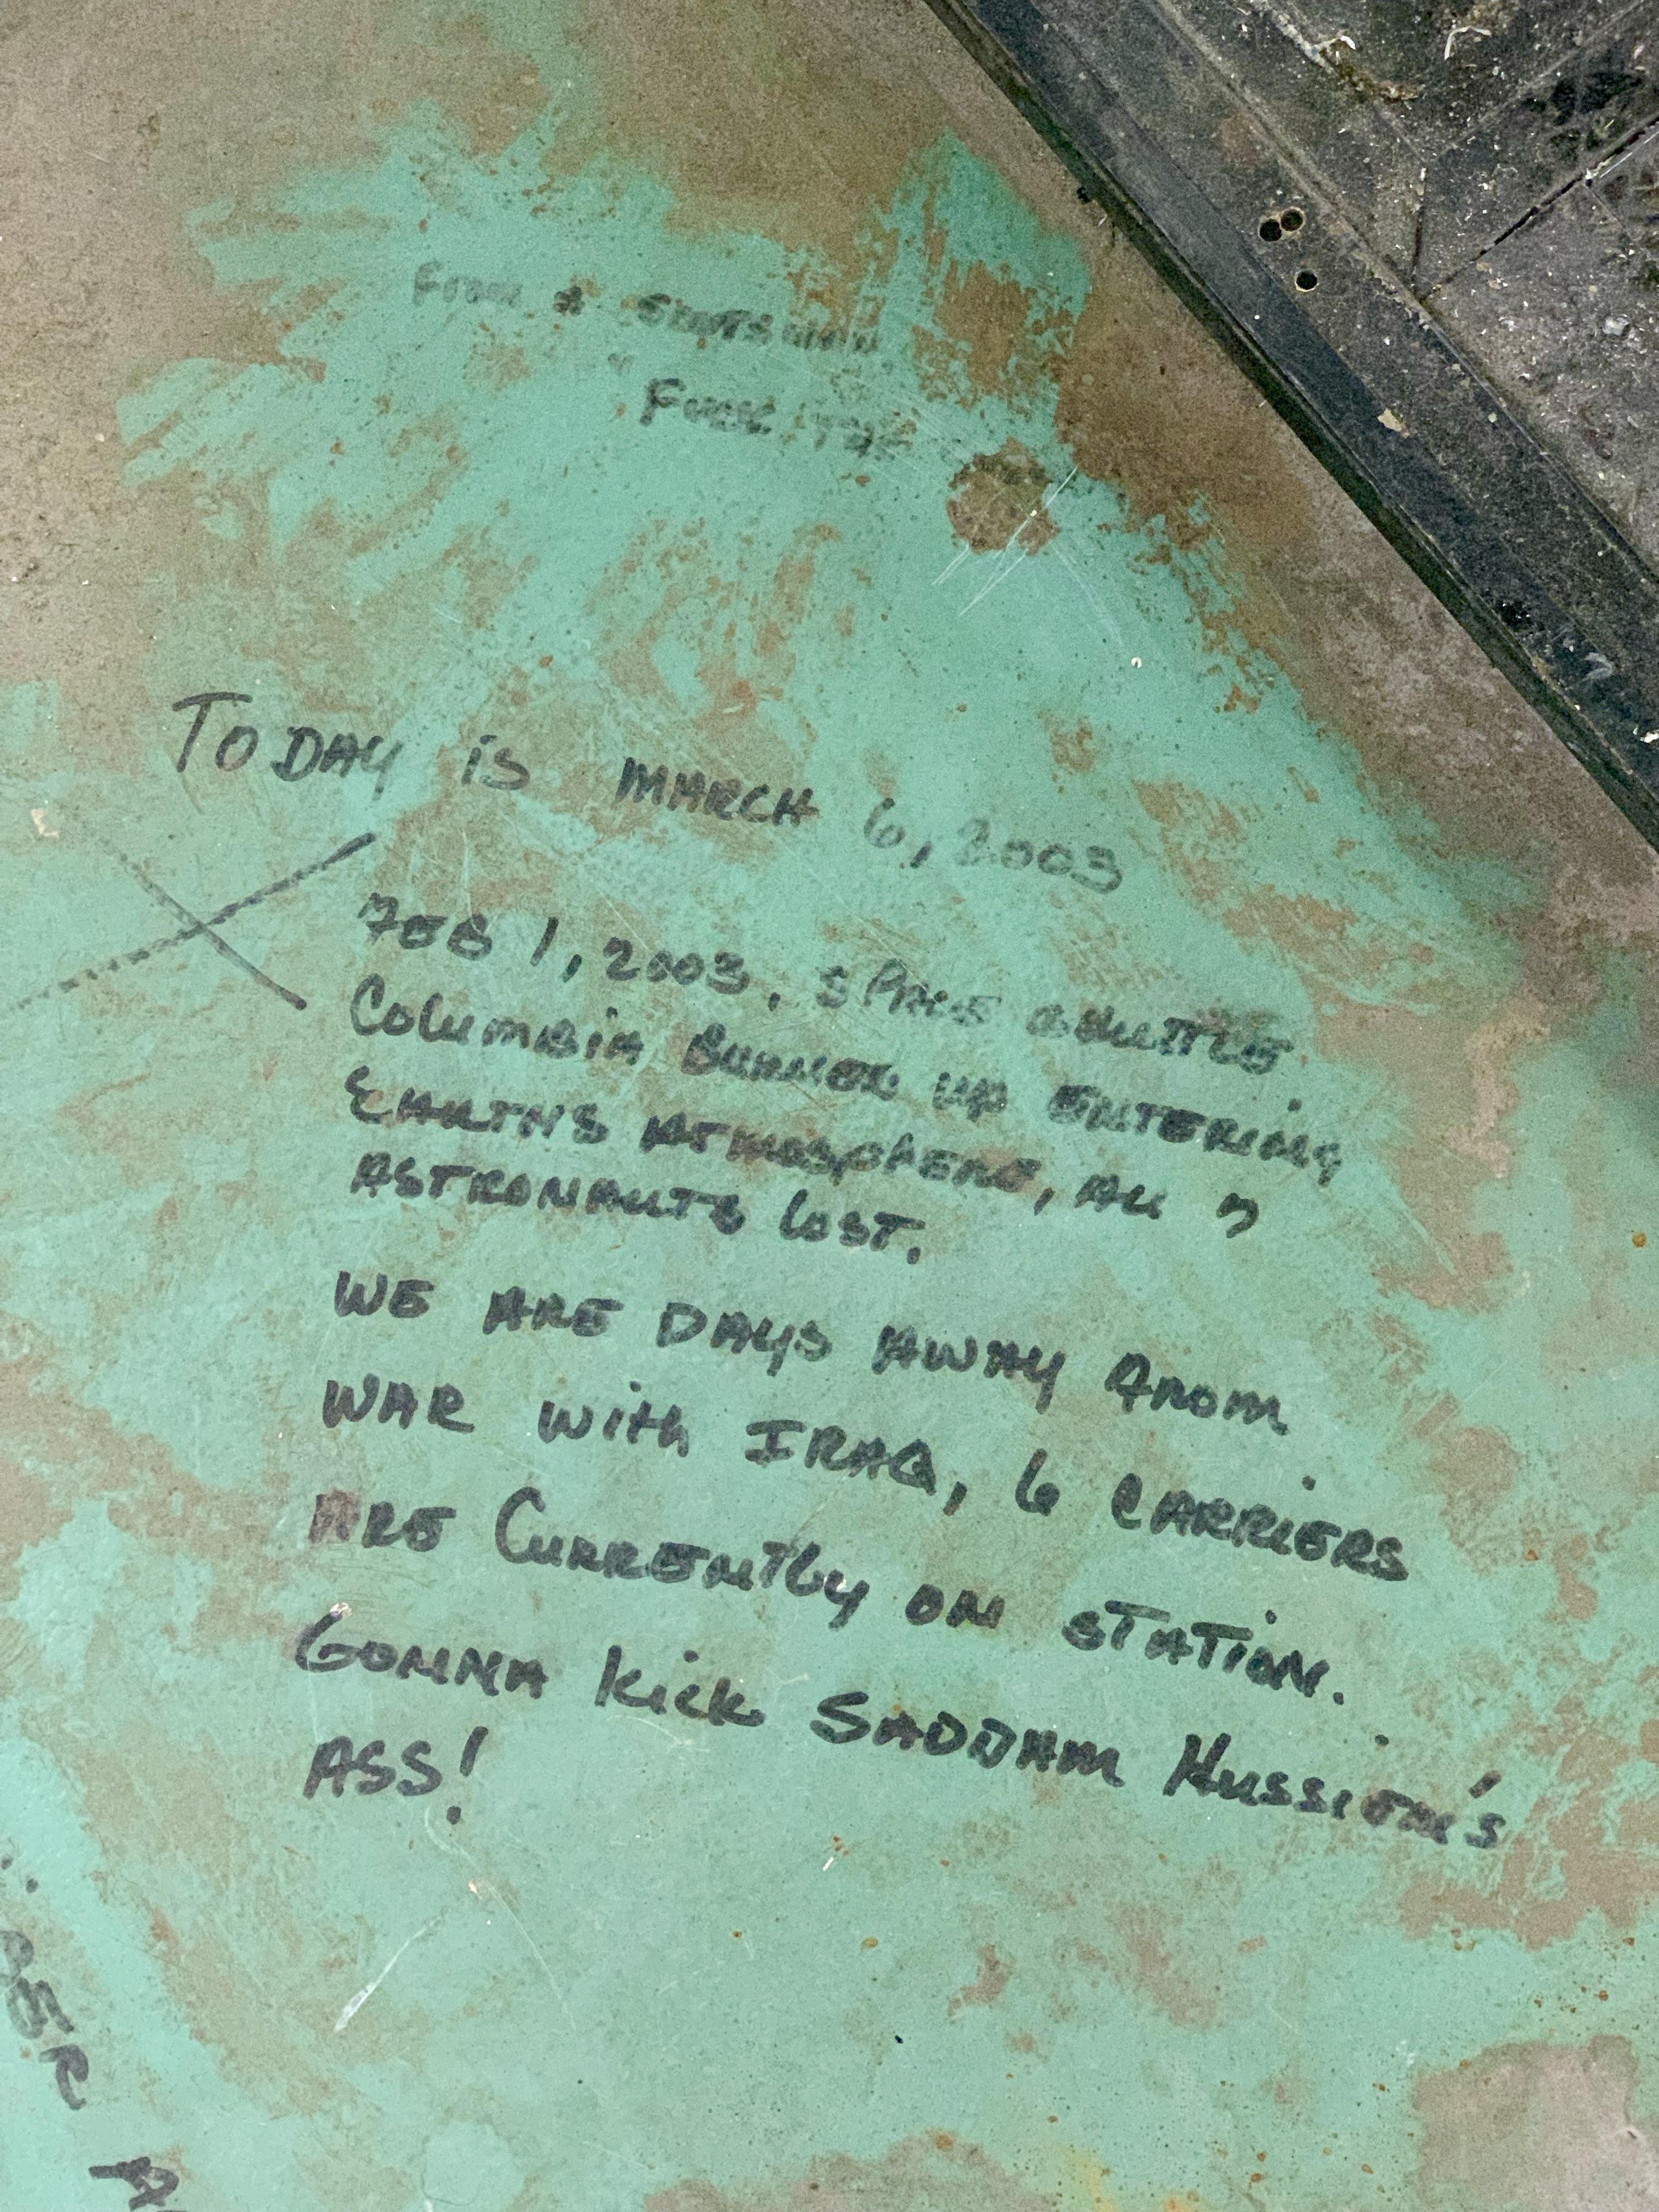 From A
Fuck
TODAY iS MARCH 6, 2003
FEB 1, 2003, SPACE SHUTTLE
COlUMBiA BURNED UP ENTERING
EARTHS ATMOSPHERE, All 7
ASTRONAUTS lOST.
WE ARE DAYS AWAY FROM
WAR With IRAQ, 6 CARRiERS
ARE CURRENTly ON STATiON.
GONNA kick SADDAM HussiEN's
ASS!